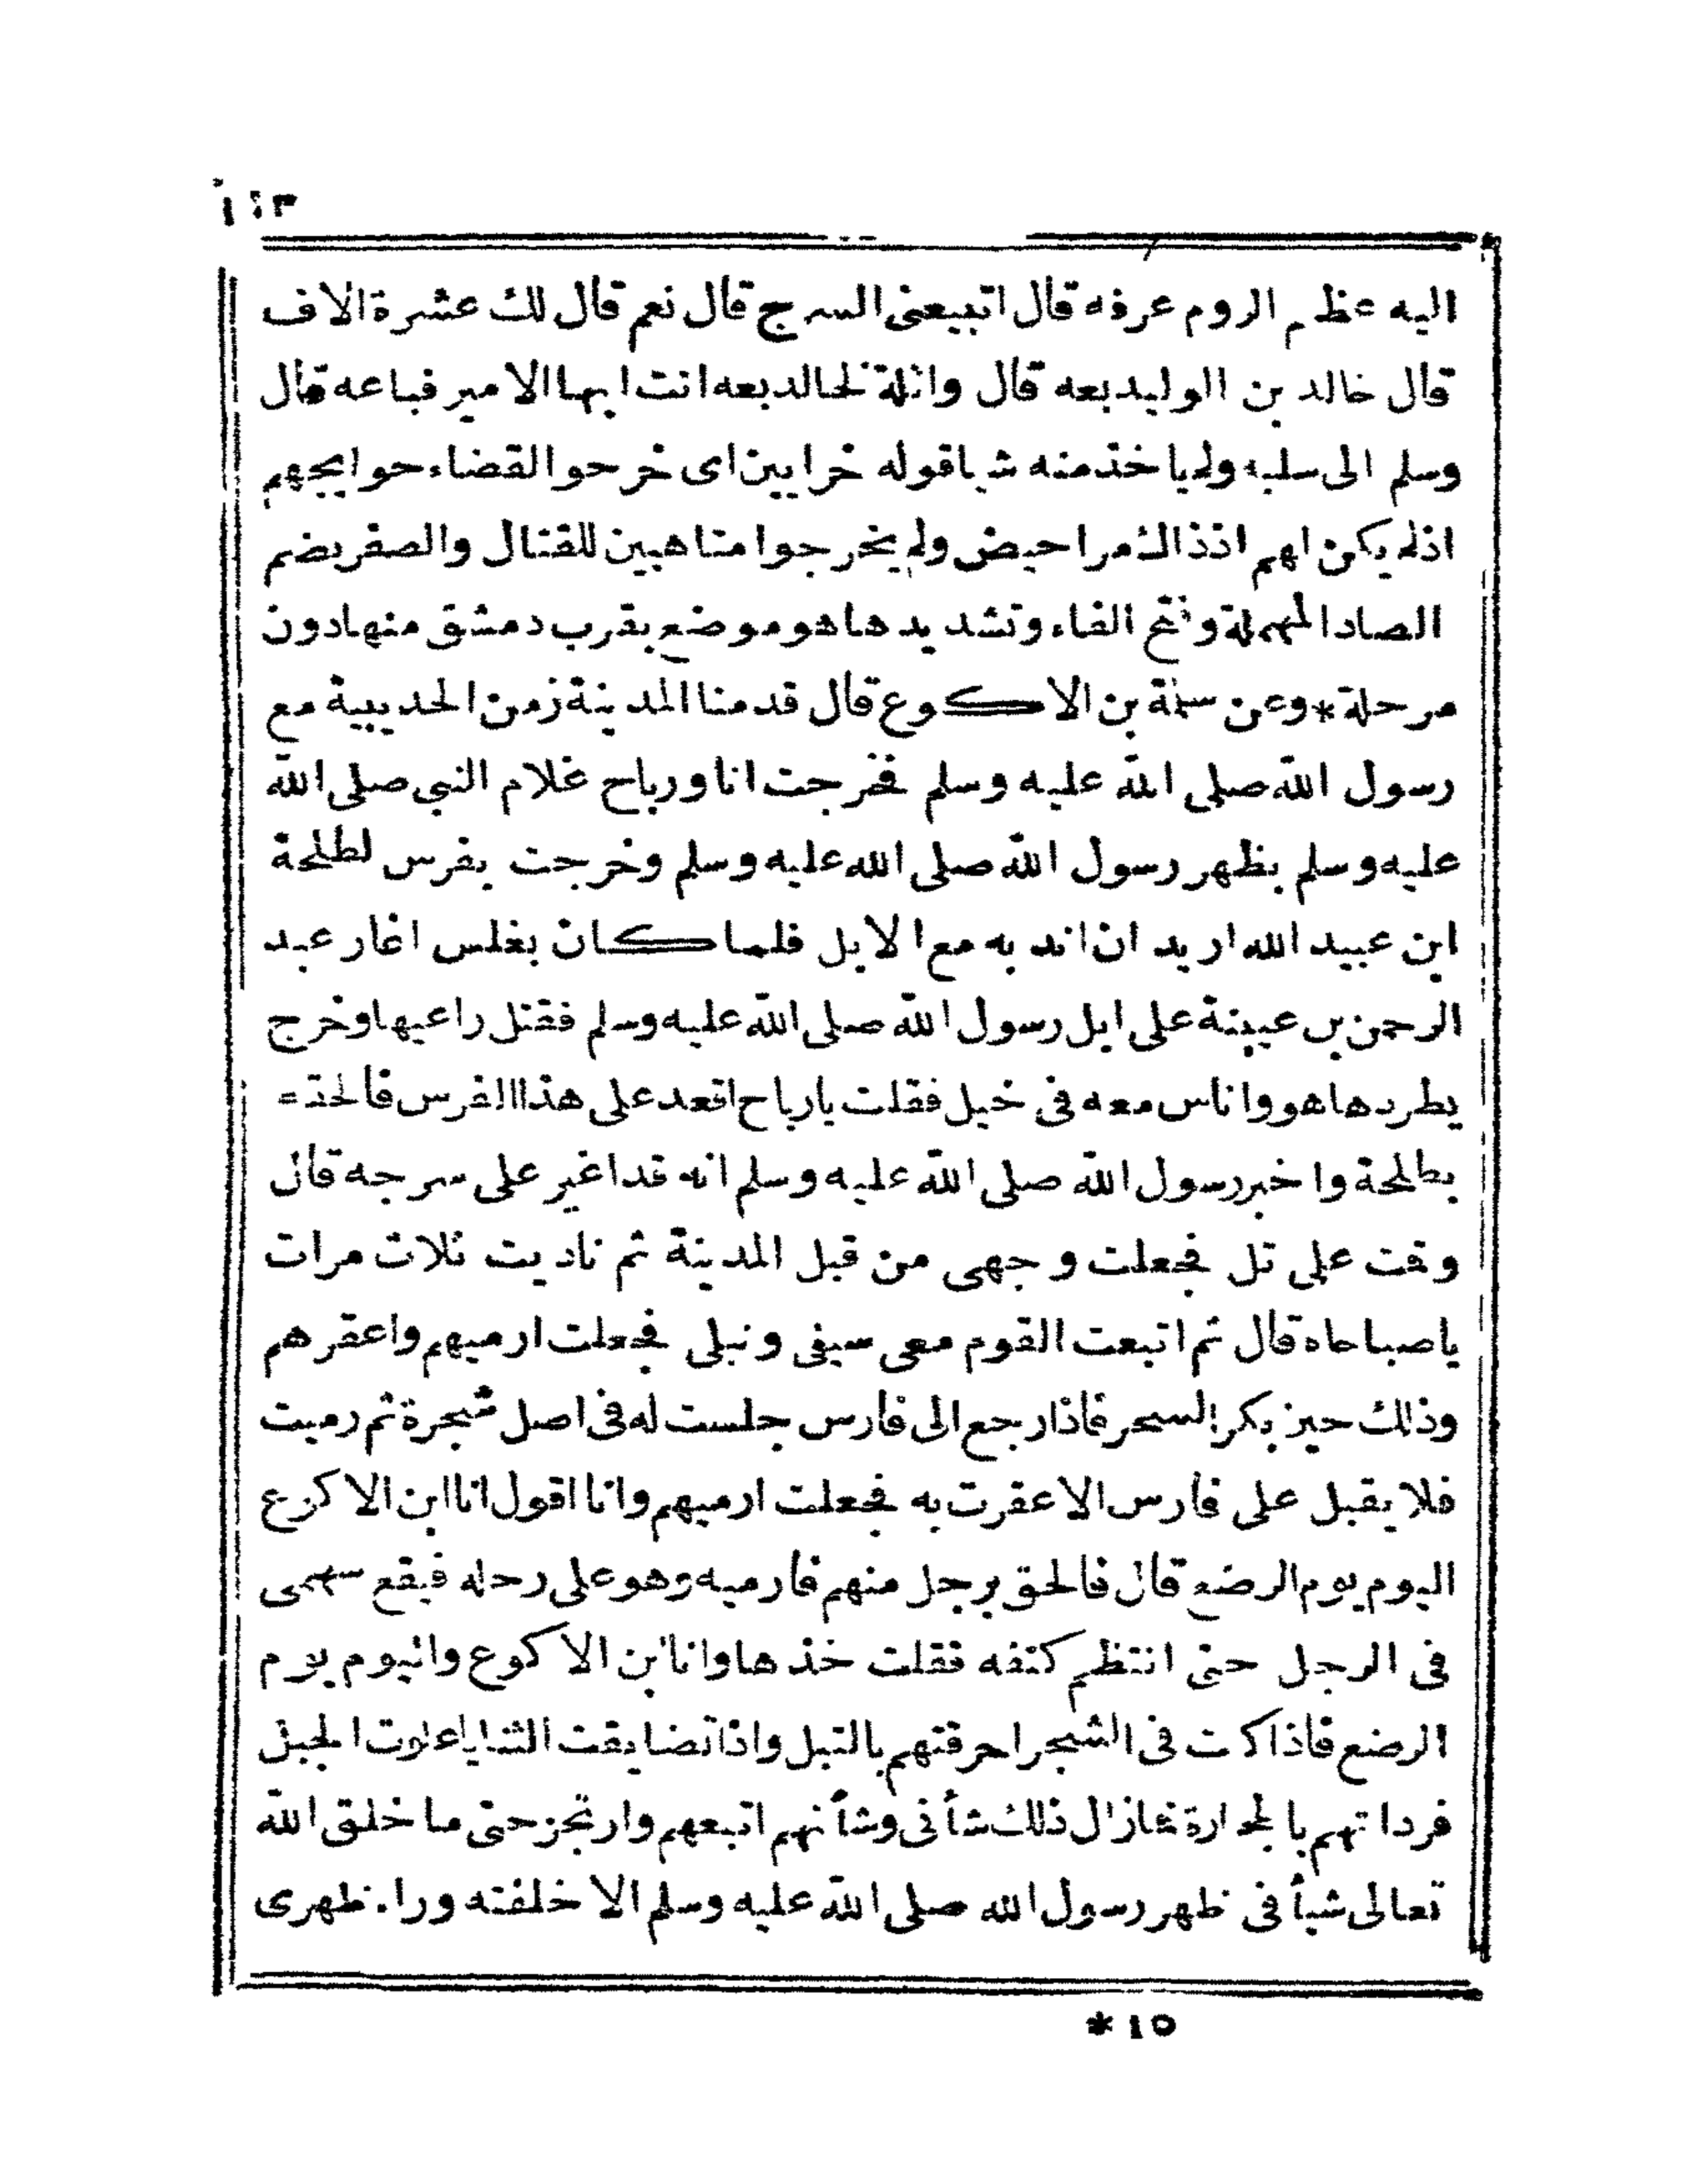 ١١٣
اليه عظيم الروم عرفه قال اتبيعنى السرج قال نعم قال لك عشرة الاف
قال خالد بن الوليد بعه قال واثلة لخالد بعه انت ايها الامير فباعه قال
وسلم الى سلبه ولم ياخذ منه شيا قوله خرايين اى خرجوا لقضاء حوايجهم
اذ لم يكن لهم اذ ذاك مراحيض ولم يخرجوا متاهبين للقتال والصفر بضم
الصاد المهملة وفتح الفاء وتشديدها هو موضع بقرب دمشق منها دون
مرحلة * وعن سلمة بن الاكوع قال قدمنا المدينة زمن الحديبية مع
رسول الله صلى الله عليه وسلم فخرجت انا ورباح غلام النبي صلى الله
عليه وسلم بظهر رسول الله صلى الله عليه وسلم وخرجت بفرس لطلحة
ابن عبيد الله اريد ان اند به مع الابل فلما كان بغلس اغار عبد
الرحمن بن عيينة على ابل رسول الله صلى الله عليه وسلم فقتل راعيها وخرج
يطردها هو واناس معه فى خيل فقلت يارباح اقعد على هذا الفرس فالحقه
بطلحة واخبر رسول الله صلى الله عليه وسلم انه قد اغير على سرجه قال
وقت على تل فجعلت وجهى من قبل المدينة ثم ناديت ثلاث مرات
ياصباحاه قال ثم اتبعت القوم معى سيفى ونبلى فجعلت ارميهم واعقرهم
وذلك حين بكر السحر فاذا رجع الى فارس جلست له فى اصل شجرة ثم رميت
فلا يقبل على فارس الا عقرت به فجعلت ارميهم وانا اقول انا ابن الاكوع
اليوم يوم الرضع قال فالحق برجل منهم فارميه وهو على رحله فيقع سهمى
فى الرجل حتى انتظم كتفه فقلت خذها وانا ابن الاكوع واليوم يوم
الرضع فاذا كنت فى الشجر احرقتهم بالنبل واذا تضايقت الثنايا علوت الجبل
فرداتهم بالحجارة فمازال ذلك شأنى وشأنهم اتبعهم وارتجز حتى ما خلق الله
تعالى شيأ فى ظهر رسول الله صلى الله عليه وسلم الا خلفته وراء ظهرى
* ١٥